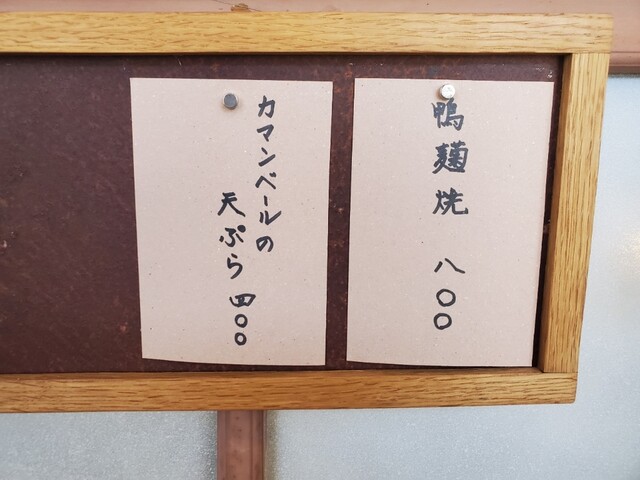 鴨麹焼 八〇〇
カマンベールの
天ぷら 四〇〇